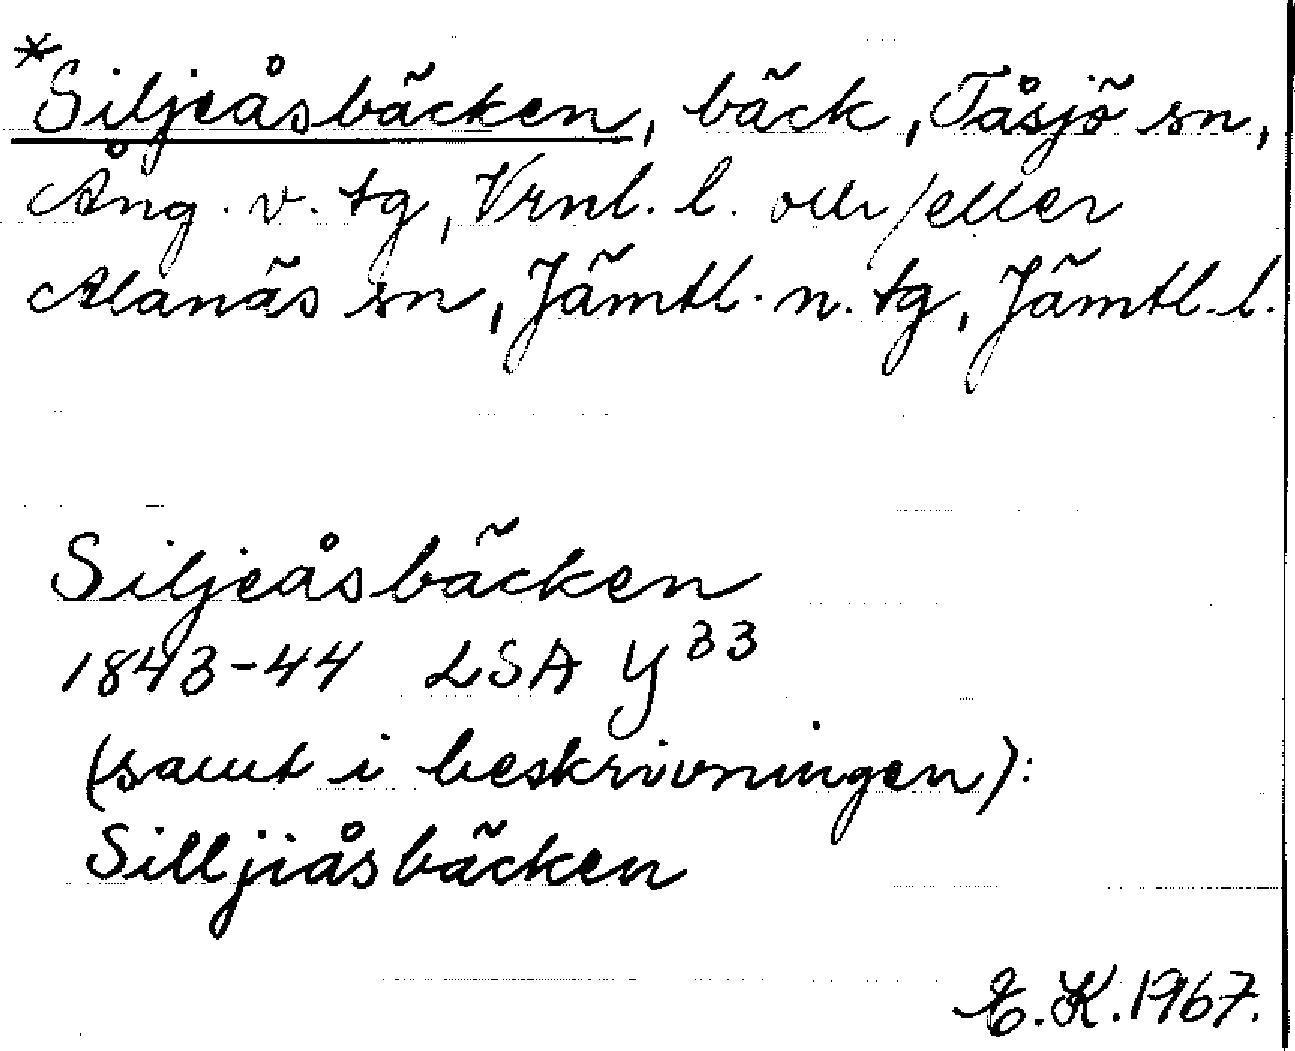 *Siljeåsbäcken, bäck, Tåsjö sn,
Ång. v. tg, Vrnl. l. och/eller
Alanäs sn, Jämtl. n. tg, Jämtl. l.
Siljeåsbäcken
1843-44 LSA Y³³
(samt i beskrivningen):
Silljiåsbäcken
E.K. 1967.